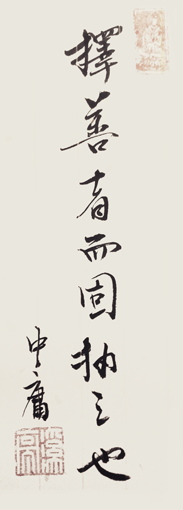 擇善者而固執之也
中庸